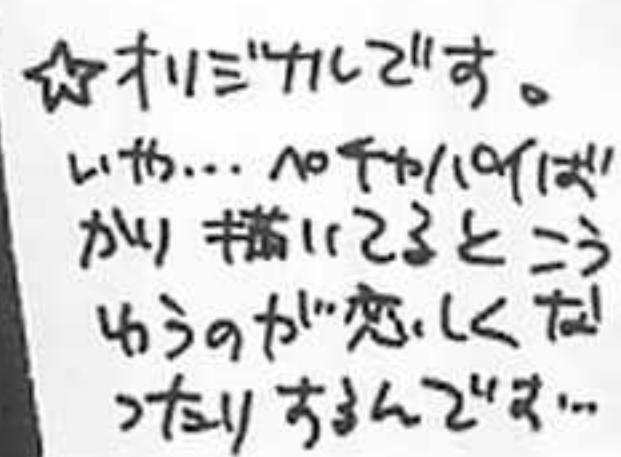 ☆オリジナルです。
いや…ペチャパイば
かり描いてるとこう
ゆうのが恋しくな
ったりするんです…